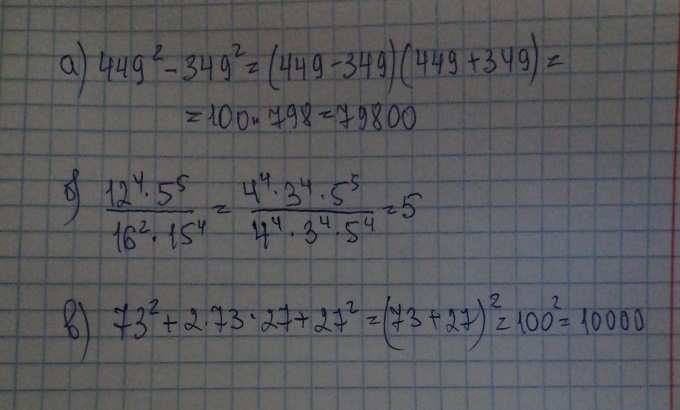 а) 449² - 349² = (449 - 349)(449 + 349) =
= 100 · 798 = 79800
б) 12⁴ · 5⁵ / 16² · 15⁴ = 4⁴ · 3⁴ · 5⁵ / 4⁴ · 3⁴ · 5⁴ = 5
в) 73² + 2 · 73 · 27 + 27² = (73 + 27)² = 100² = 10000